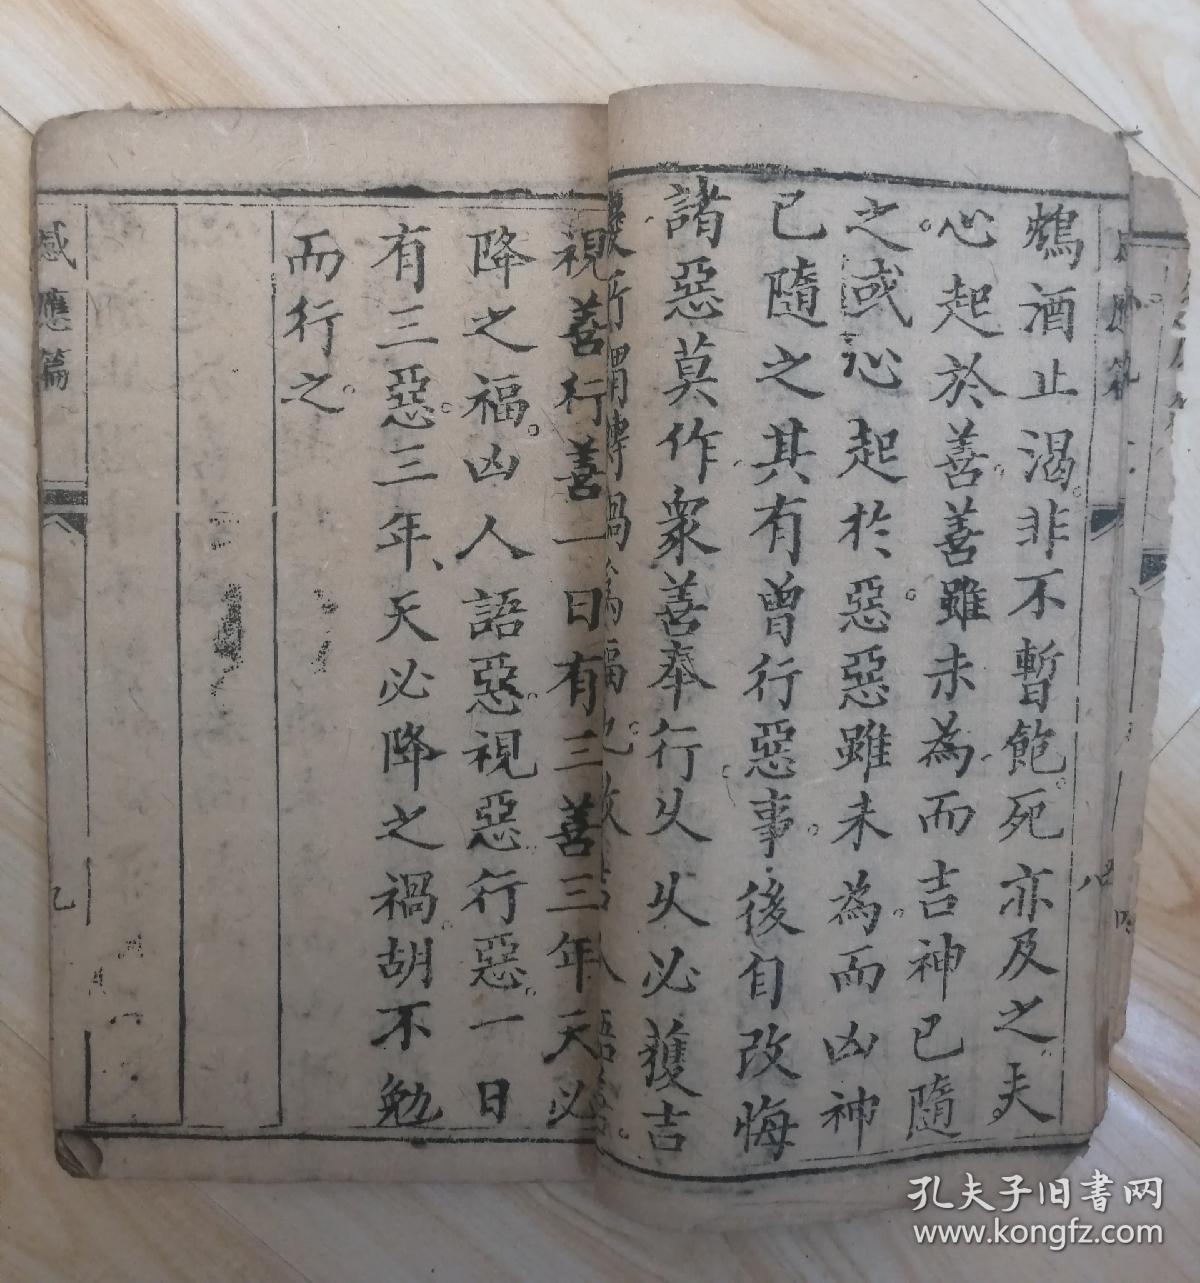 鴆酒止渴。非不暫飽。死亦及之。夫
心起於善。善雖未為。而吉神已隨
之。或心起於惡。惡雖未為。而凶神
已隨之。其有曾行惡事。後自改悔
諸惡莫作。衆善奉行。乆乆必獲吉
視善行善一日有三善三年天必
降之福。凶人語惡。視惡行惡。一日
有三惡。三年、天必降之禍。胡不勉
而行之。
感應篇
孔夫子旧書网
www.kongfz.com